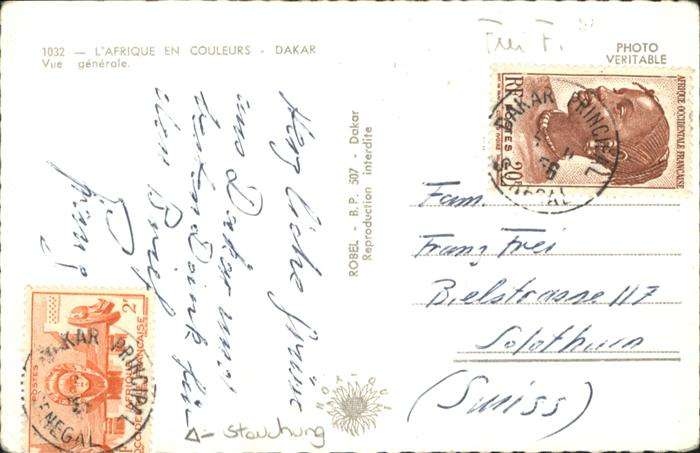 1032 — L'AFRIQUE EN COULEURS - DAKAR
Vue générale.
Frei F.
PHOTO
VERITABLE
Herzliche Grüsse
aus Dakar und
besten Dank für
den Brief
ROBEL - B.P. 507 - Dakar
Reproduction interdite
AFRIQUE OCCIDENTALE FRANÇAISE
RF POSTES 20F
DAKAR PRINCIPAL
SENEGAL
Fam.
Franz Frei
Bielstrasse 117
Solothurn
(Suisse)
2F
POSTES
DAKAR PRINCIPAL
SENEGAL
Δ- Stauchung